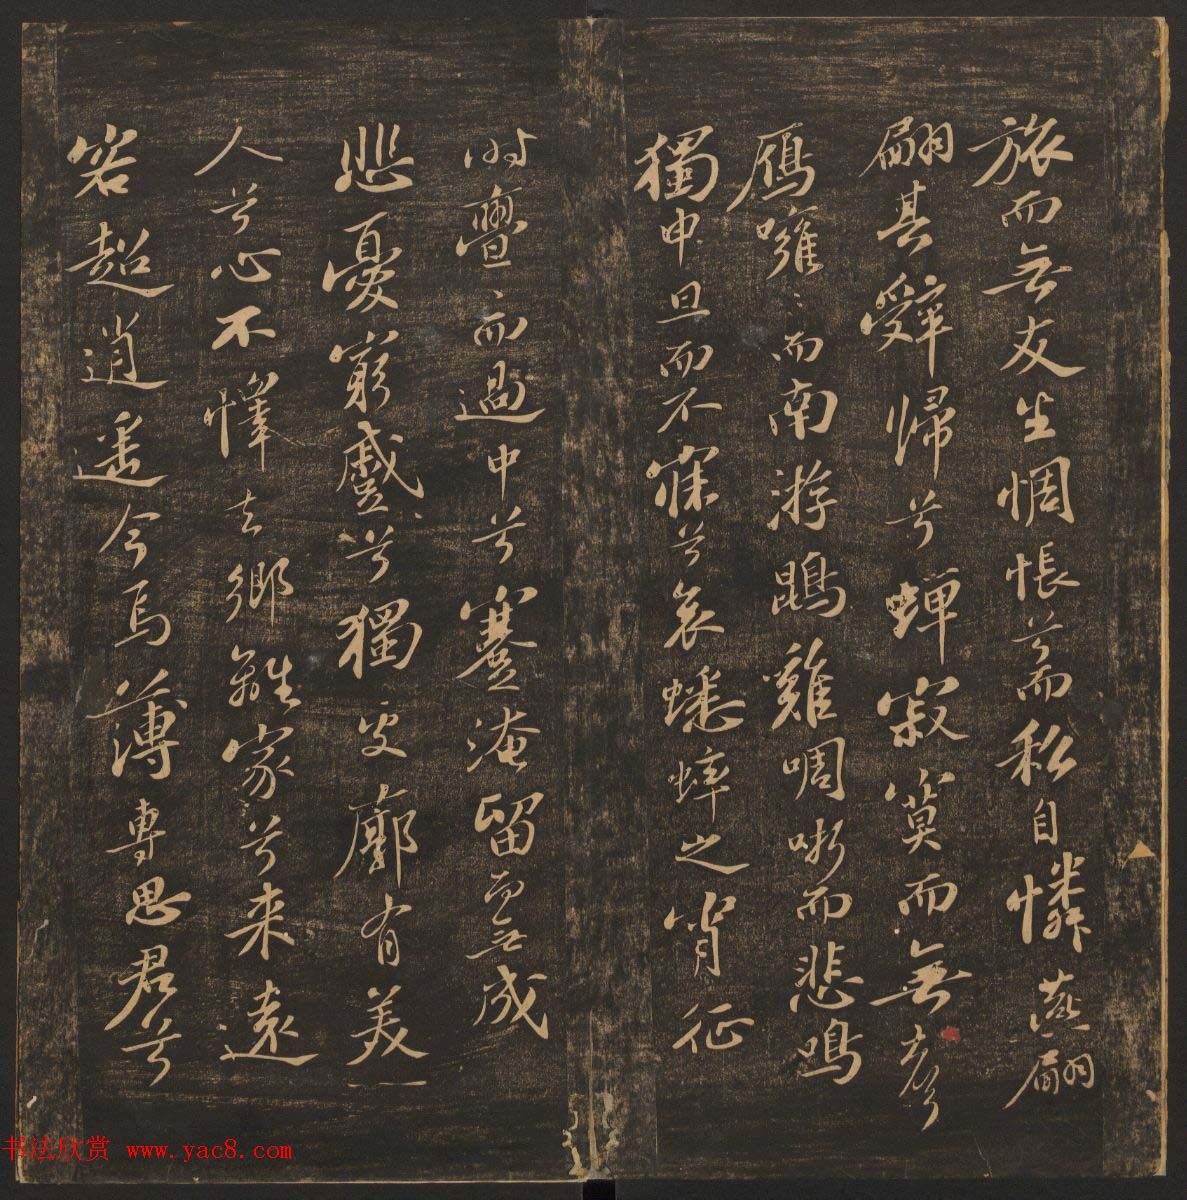 旅而无友生惆悵兮而私自憐燕翩
翩其辭歸兮蟬寂寞而無聲
鴈嗈〻而南游鵾雞啁哳而悲鳴
獨申旦而不寐兮哀蟋蟀之宵征
時亹〻而過中兮蹇淹留而无成
悲憂窮蹙兮獨處廓有美一
人兮心不懌去鄉離家兮来遠
客超逍遥今焉薄專思君兮
书法欣赏 www.yac8.com